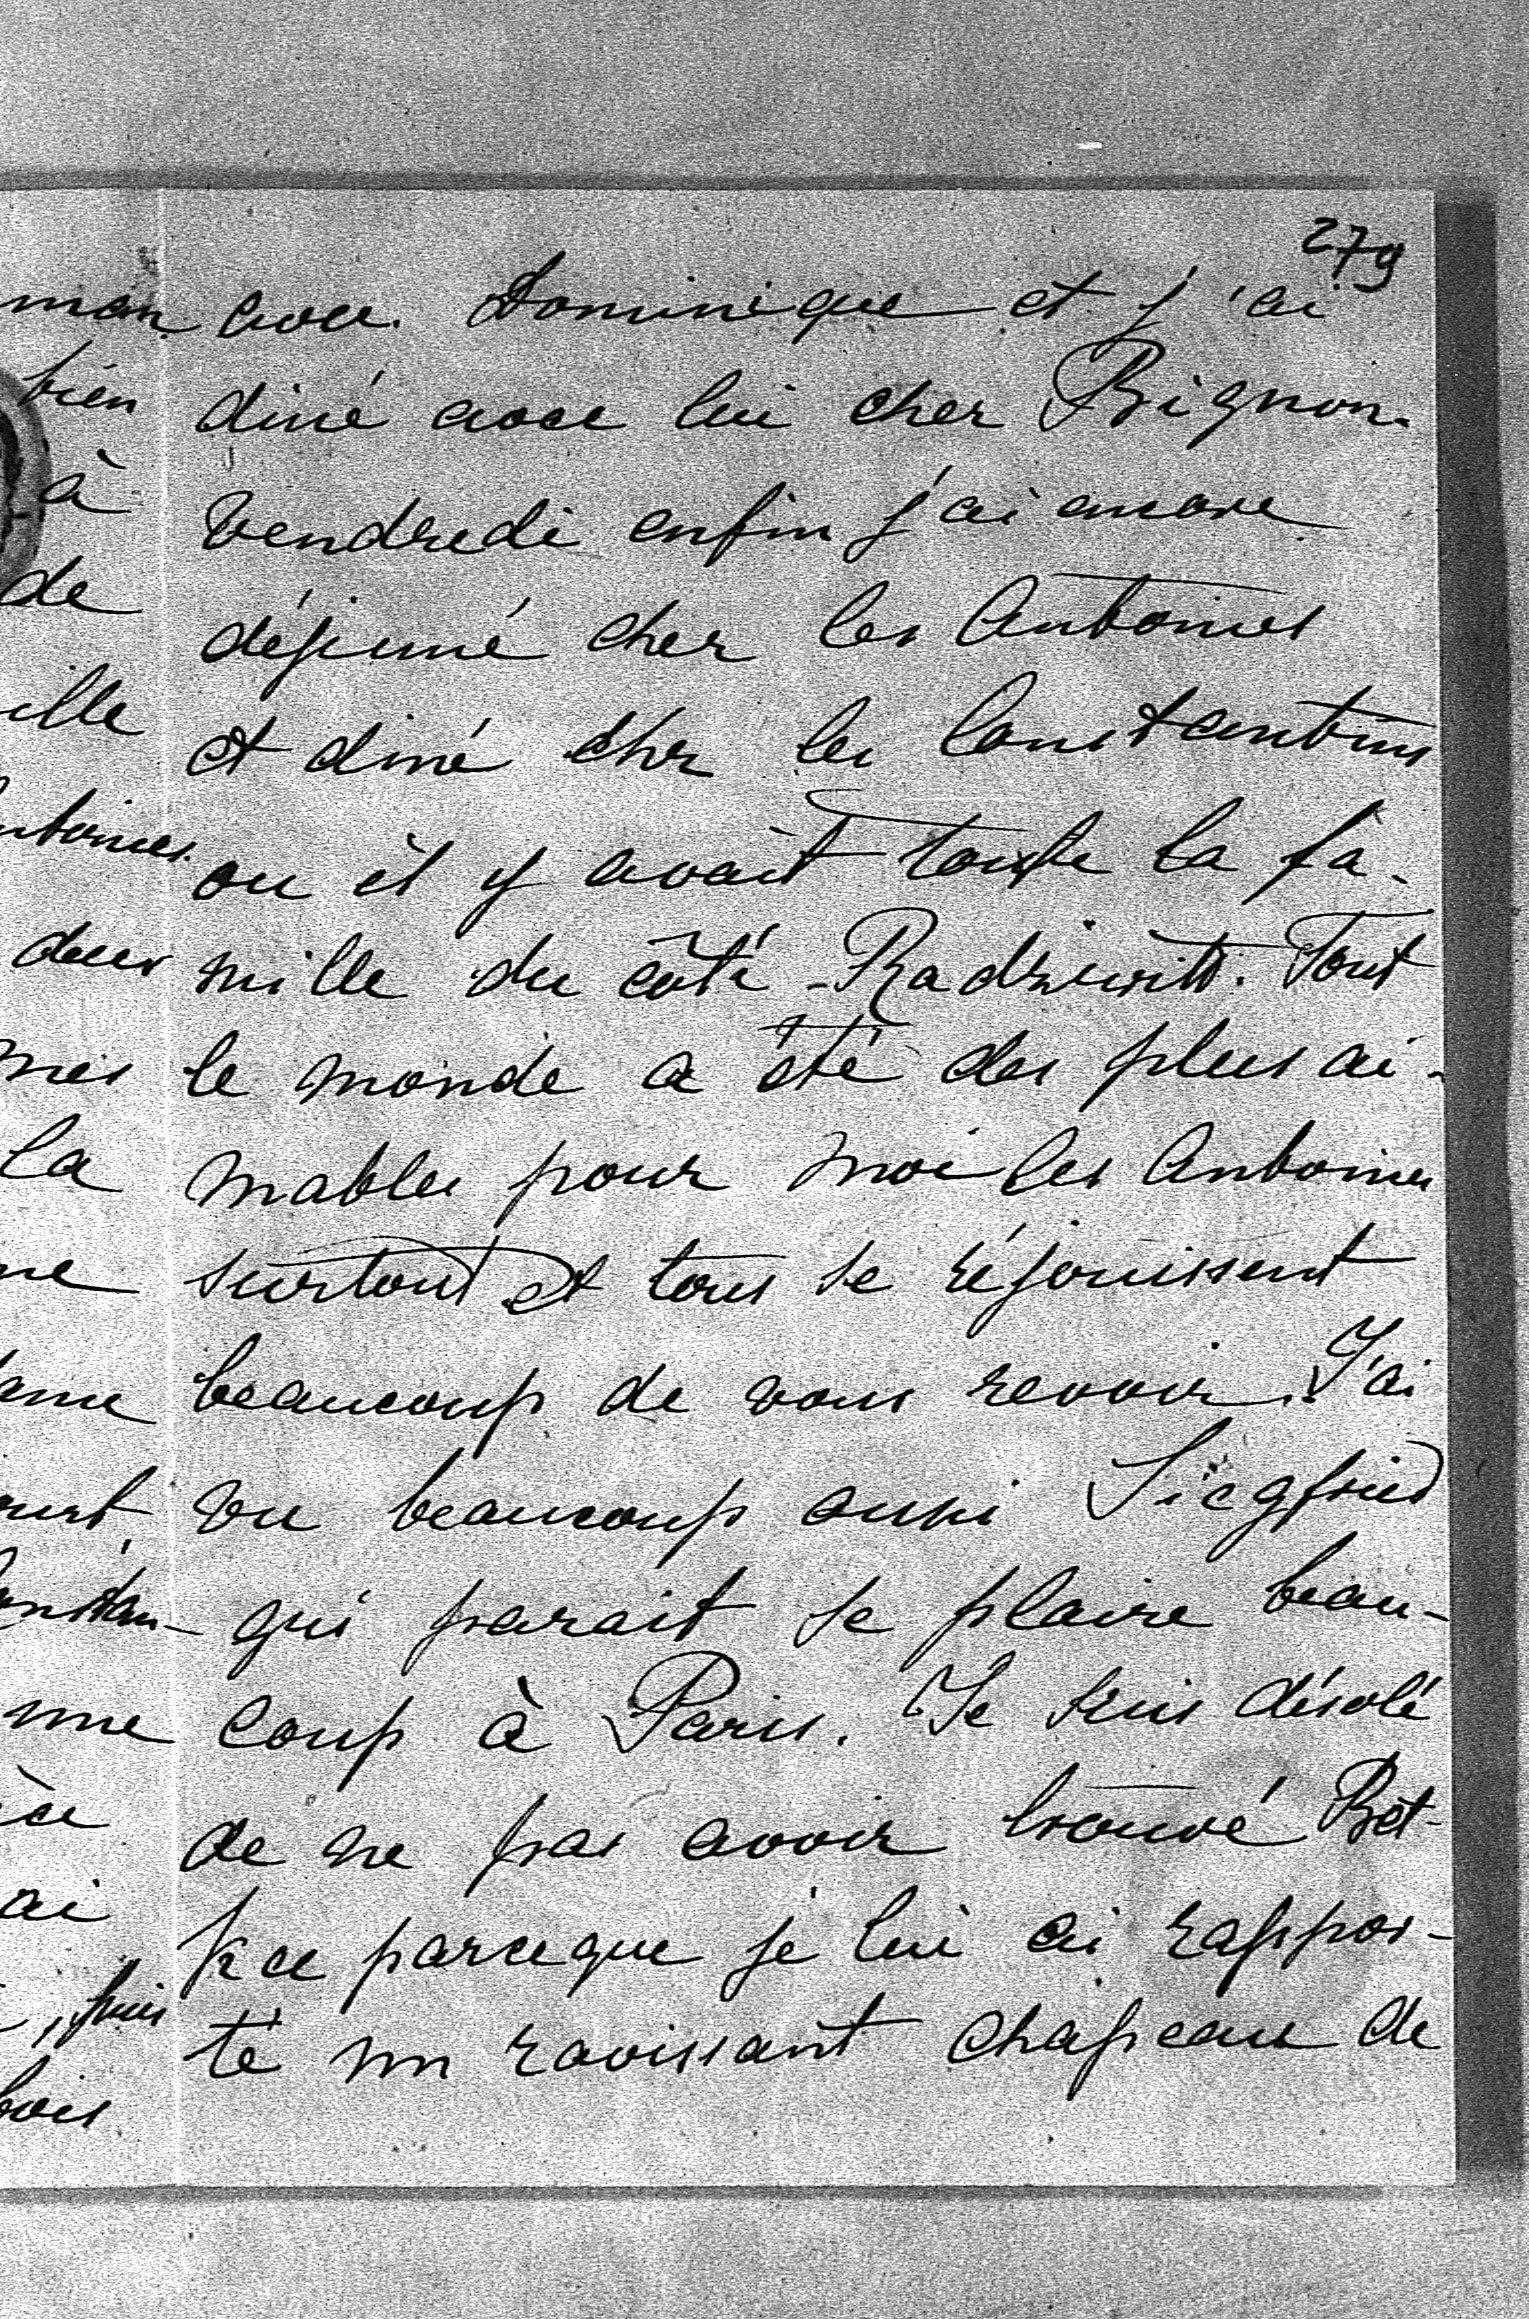 279
avec Dominique et j'ai
diné avec lui chez Bignon.
Vendredi enfin j'ai encore
déjeuné chez les Antoines
et diné chez les Constantins
ou il y avait toute la fa-
mille du côté Radziwill. Tout
le monde a été des plus ai-
mables pour moi les Antoines
surtout et tous se réjouissent
beaucoup de vous revoir. J'ai
vu beaucoup aussi Siegfried
qui parait se plaire beau-
coup à Paris. Je suis désolé
de ne pas avoir trouvé Bet-
ka parceque je lui ai rappor-
té un ravissant chapeau de
man
bien
à
de
ille
ntoines.
deux
mes
la
ne
ame
ourt
onstan-
une
ai
, puis
bois